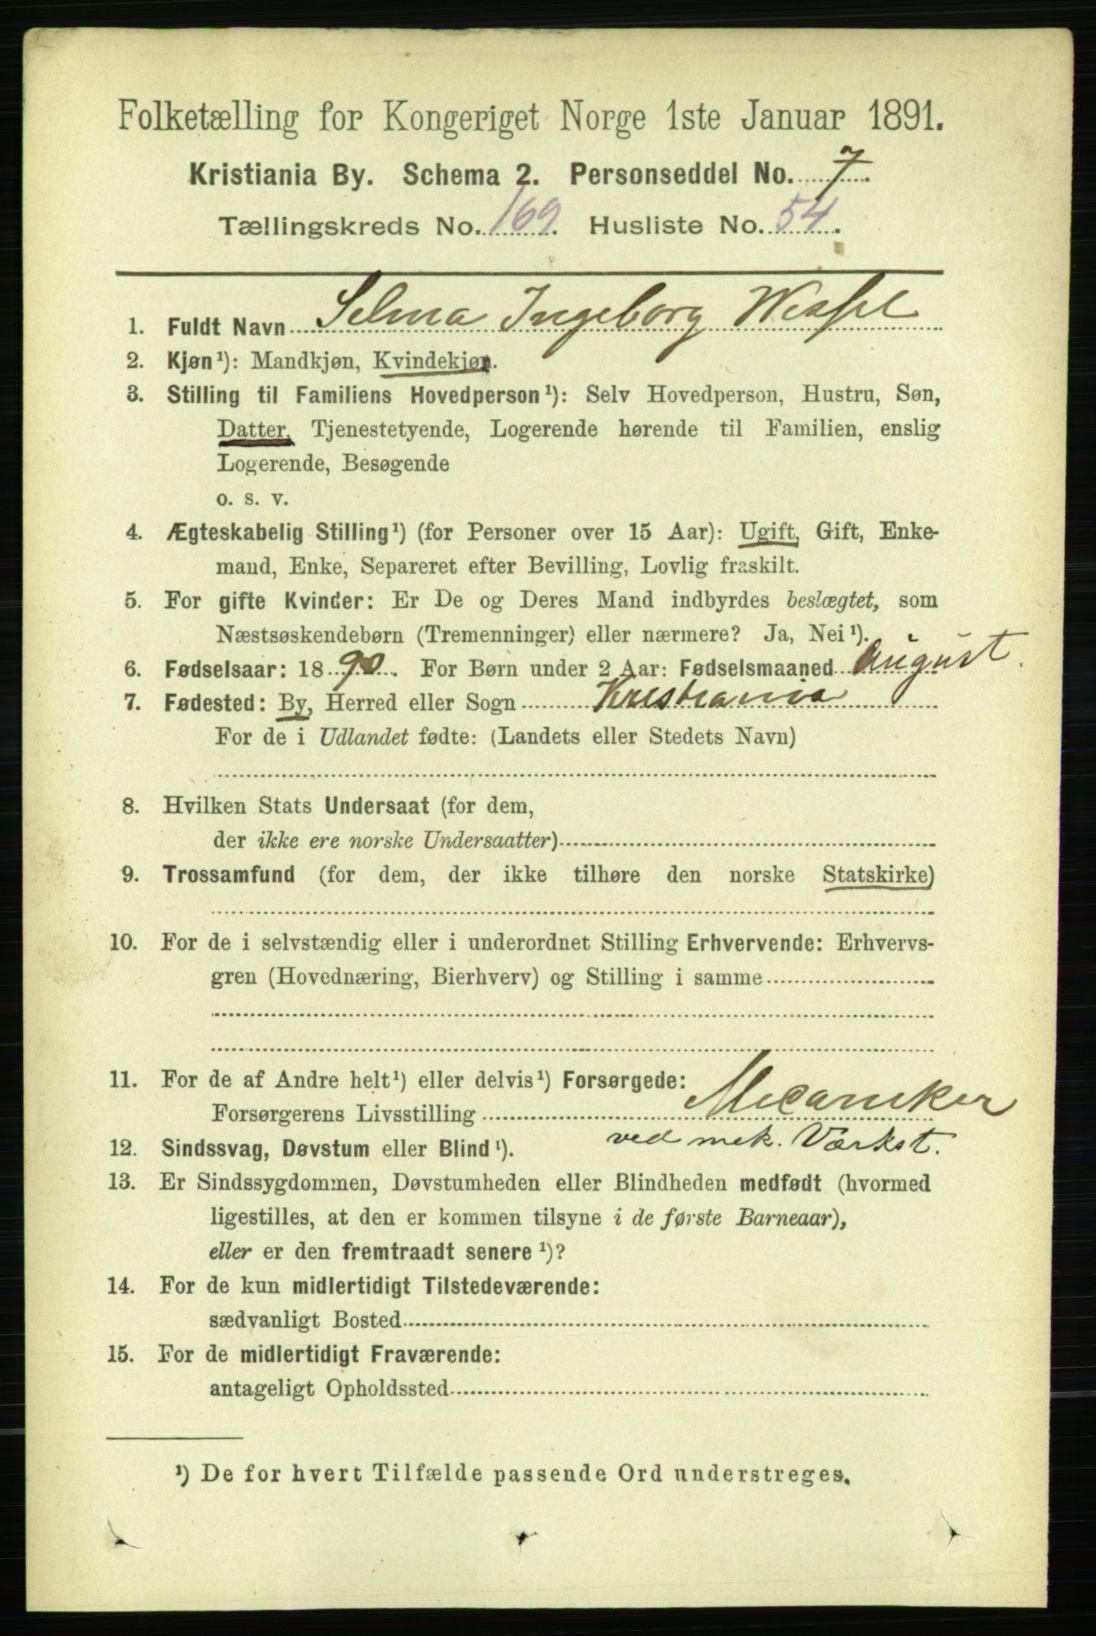 Folketælling for Kongeriget Norge 1ste Januar 1891.
Kristiania By. Schema 2. Personseddel No. 7.
Tællingskreds No. 169. Husliste No. 54.
1. Fuldt Navn Selma Ingeborg Wessel
2. Kjøn¹): Mandkjøn, Kvindekjøn.
3. Stilling til Familiens Hovedperson¹): Selv Hovedperson, Hustru, Søn,
Datter, Tjenestetyende, Logerende hørende til Familien, enslig
Logerende, Besøgende
o. s. v.
4. Ægteskabelig Stilling¹) (for Personer over 15 Aar): Ugift, Gift, Enke-
mand, Enke, Separeret efter Bevilling, Lovlig fraskilt.
5. For gifte Kvinder: Er De og Deres Mand indbyrdes beslægtet, som
Næstsøskendebørn (Tremenninger) eller nærmere? Ja, Nei¹).
6. Fødselsaar: 1890. For Børn under 2 Aar: Fødselsmaaned August.
7. Fødested: By, Herred eller Sogn Kristiania
For de i Udlandet fødte: (Landets eller Stedets Navn)
8. Hvilken Stats Undersaat (for dem,
der ikke ere norske Undersaatter)
9. Trossamfund (for dem, der ikke tilhøre den norske Statskirke)
10. For de i selvstændig eller i underordnet Stilling Erhvervende: Erhvervs-
gren (Hovednæring, Bierhverv) og Stilling i samme
11. For de af Andre helt¹) eller delvis¹) Forsørgede:
Forsørgerens Livsstilling Mecaniker
ved mek. Værkst.
12. Sindssvag, Døvstum eller Blind¹).
13. Er Sindssygdommen, Døvstumheden eller Blindheden medfødt (hvormed
ligestilles, at den er kommen tilsyne i de første Barneaar),
eller er den fremtraadt senere¹)?
14. For de kun midlertidigt Tilstedeværende:
sædvanligt Bosted
15. For de midlertidigt Fraværende:
antageligt Opholdssted
¹) De for hvert Tilfælde passende Ord understreges.